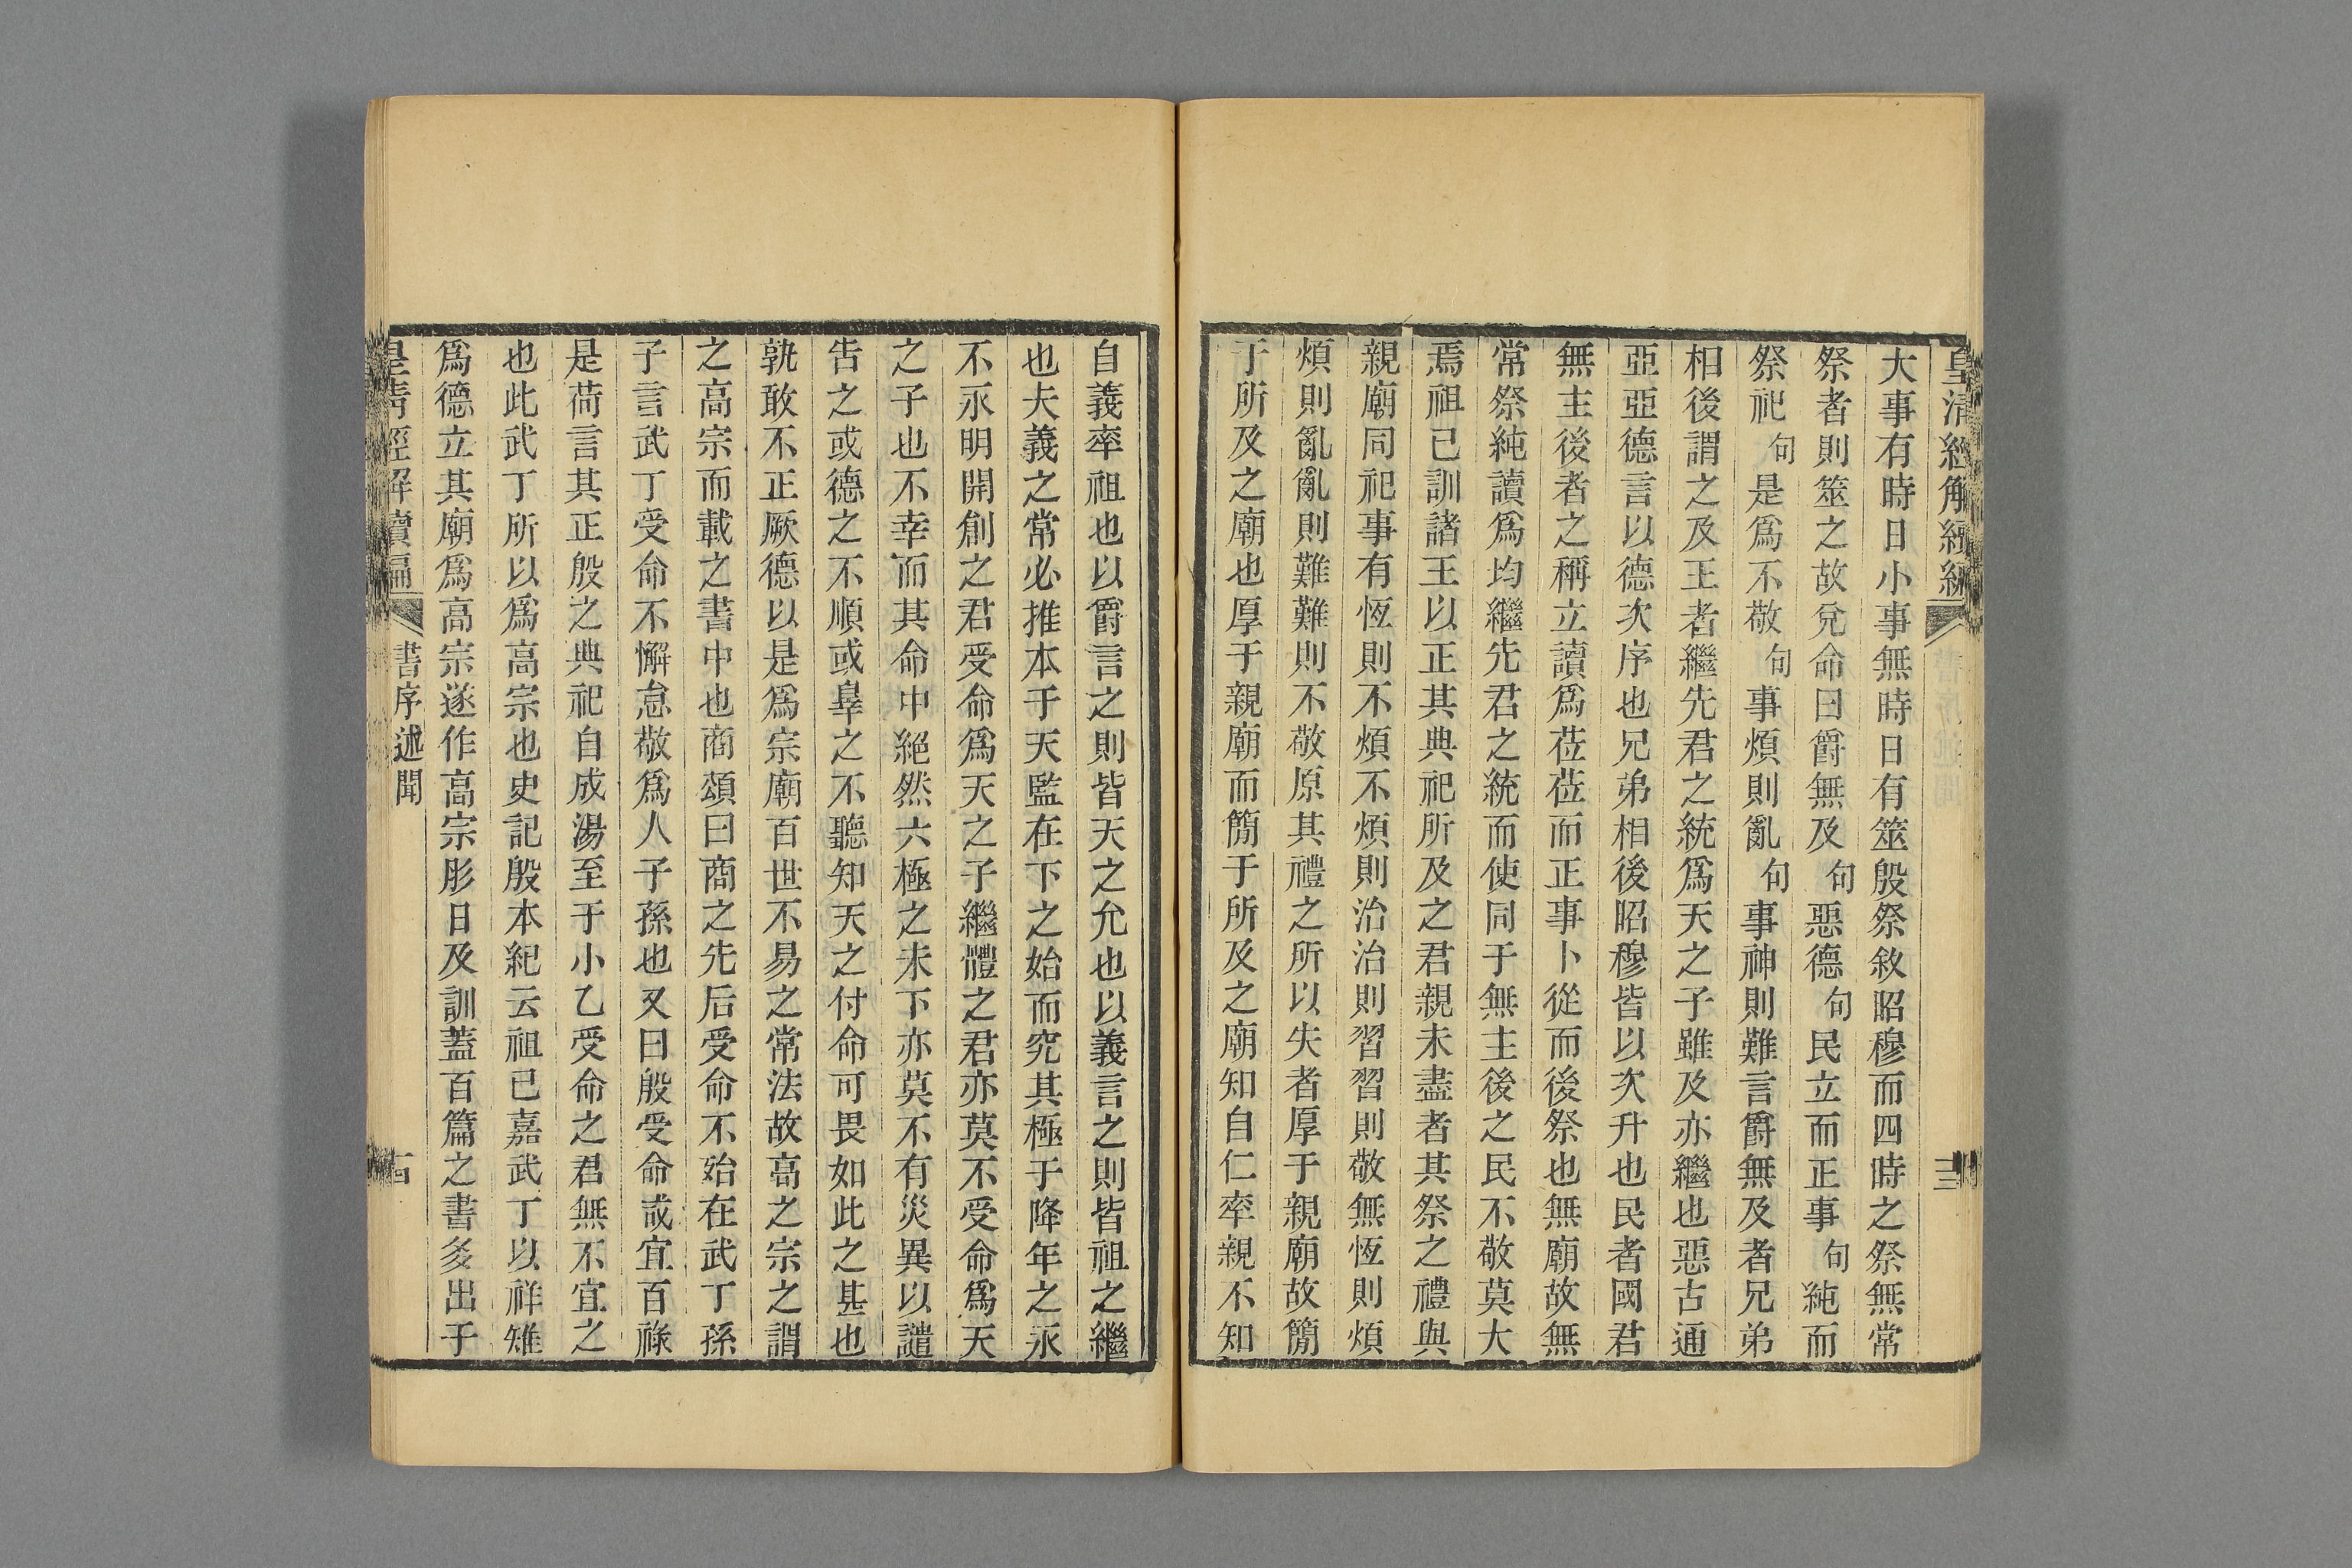 皇清經解續編
三
大事有時日小事無時日有筮殷祭敘昭穆而四時之祭無常
祭者則筮之故兌命曰爵無及句惡德句民立而正事句純而
祭祀句是爲不敬句事煩則亂句事神則難言爵無及者兄弟
相後謂之及王者繼先君之統爲天之子雖及亦繼也惡古通
亞亞德言以德次序也兄弟相後昭穆皆以次升也民者國君
無主後者之稱立讀爲莅莅而正事卜從而後祭也無廟故無
常祭純讀爲均繼先君之統而使同于無主後之民不敬莫大
焉祖已訓諸王以正其典祀所及之君親未盡者其祭之禮與
親廟同祀事有恆則不煩不煩則治治則習習則敬無恆則煩
煩則亂亂則難難則不敬原其禮之所以失者厚于親廟故簡
于所及之廟也厚于親廟而簡于所及之廟知自仁率親不知
自義率祖也以爵言之則皆天之允也以義言之則皆祖之繼
也夫義之常必推本于天監在下之始而究其極于降年之永
不永明開創之君受命爲天之子繼體之君亦莫不受命爲天
之子也不幸而其命中絕然六極之未下亦莫不有災異以譴
告之或德之不順或辠之不聽知天之付命可畏如此之甚也
孰敢不正厥德以是爲宗廟百世不易之常法故高之宗之謂
之高宗而載之書中也商頌曰商之先后受命不殆在武丁孫
子言武丁受命不懈怠敬爲人子孫也又曰殷受命咸宜百祿
是荷言其正殷之典祀自成湯至于小乙受命之君無不宜之
也此武丁所以爲高宗也史記殷本紀云祖已嘉武丁以祥雉
爲德立其廟爲高宗遂作高宗肜日及訓蓋百篇之書多出于
皇清經解續編
書序述聞